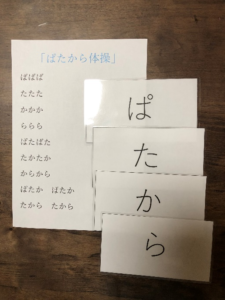 「ぱたから体操」
ぱぱぱ
たたた
かかか
ららら
ぱたぱた
たかたか
からから
ぱたか　ぱたか
たから　たから
ぱ
た
か
ら